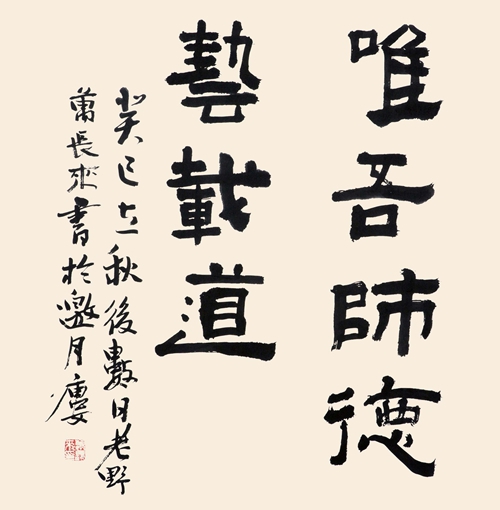 唯吾師德
藝載道
癸巳立秋後數日老野
萬長來書於邀月廔